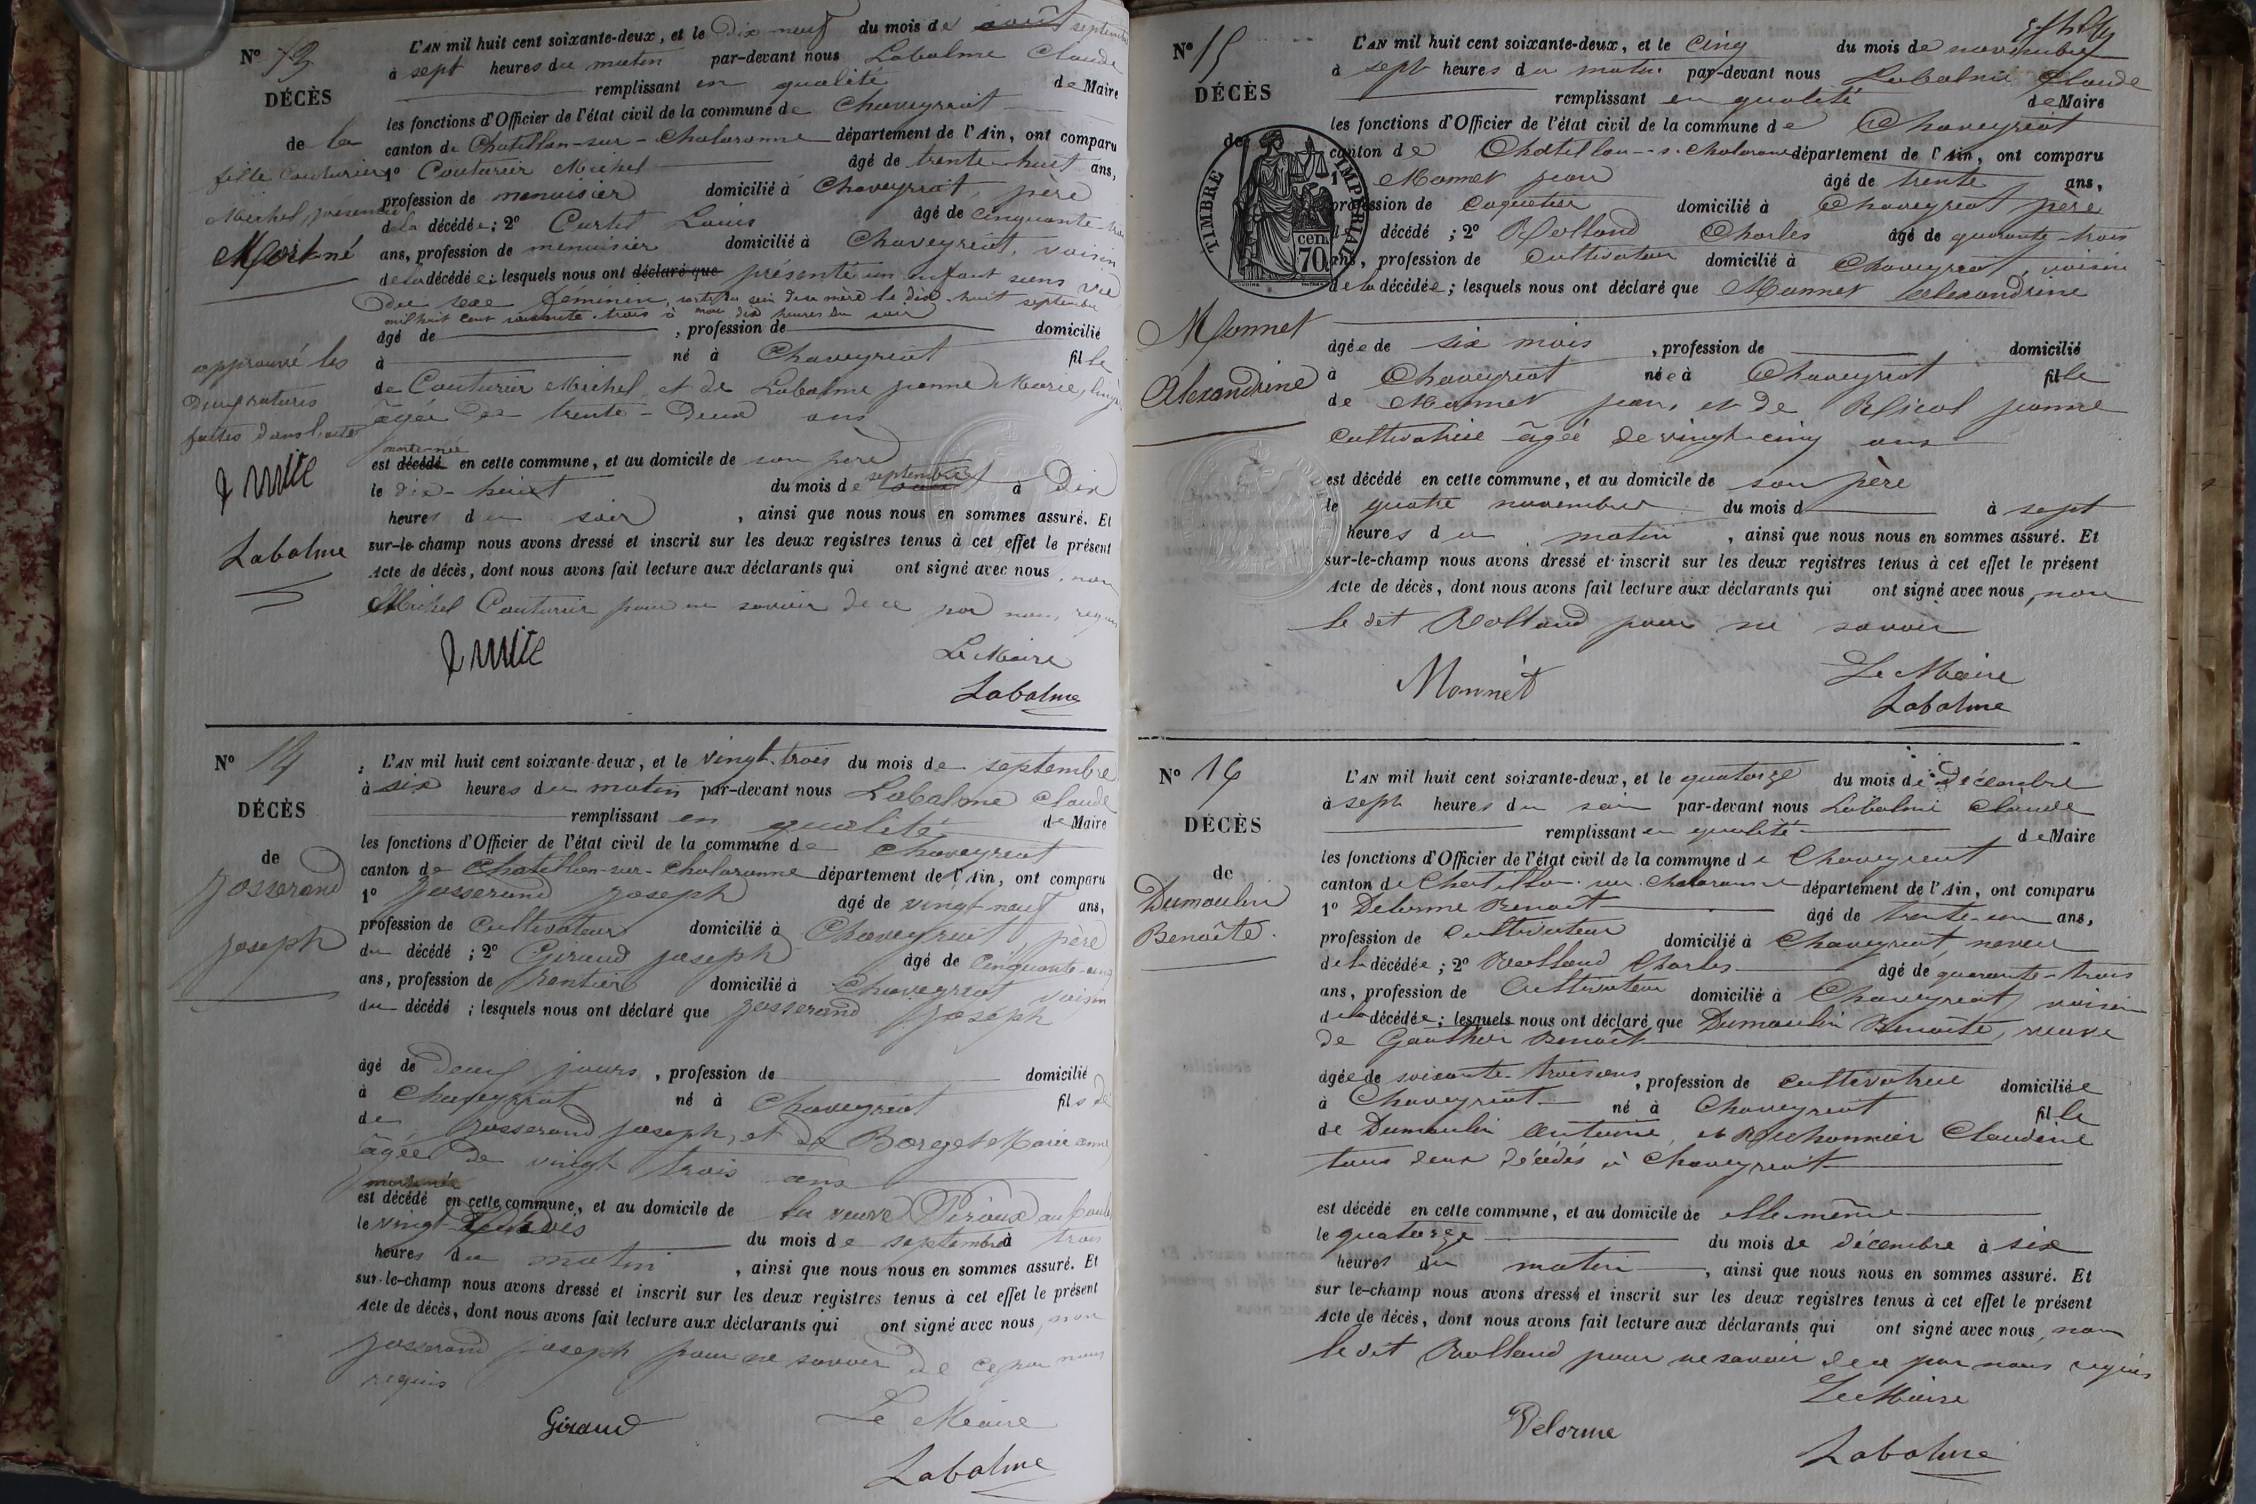 N° 13
DÉCÈS
de la
fille Couturier
Michel, présenté
Mort-né
approuvé les
deux ratures
faites dans l'acte
Labalme
L'AN mil huit cent soixante-deux, et le Dix neuf du mois de août septembre
à sept heures du matin par-devant nous Labalme Claude
remplissant en qualité de Maire
les fonctions d'Officier de l'état civil de la commune de Chaveyriat
canton de Chatillon-sur-Chalaronne département de l'Ain, ont comparu
1° Couturier Michel âgé de trente-huit ans,
profession de menuisier domicilié à Chaveyriat, père
de la décédée; 2° Curtet Louis âgé de cinquante-
ans, profession de menuisier domicilié à Chaveyriat, voisin
de la décédée; lesquels nous ont déclaré que présenté un enfant sans vie
du sexe féminin, sorti du sein de sa mère le dix-huit septembre
mil huit cent soixante-trois à dix heures du soir
âgé de , profession de domicilié
à né à Chaveyriat fille
de Couturier Michel et de Labalme jeanne Marie,
âgée de trente-deux ans
mort-née
est décédé en cette commune, et au domicile de son père
le dix-huit du mois de septembre à Dix
heures du soir , ainsi que nous nous en sommes assuré. Et
sur-le-champ nous avons dressé et inscrit sur les deux registres tenus à cet effet le présent
Acte de décès, dont nous avons fait lecture aux déclarants qui ont signé avec nous, non
Michel Couturier pour ne savoir de ce par nous requis
Le Maire
Labalme
N° 14
DÉCÈS
de
Josserand
joseph
L'AN mil huit cent soixante-deux, et le vingt-trois du mois de septembre
à six heures du matin par-devant nous Labalme Claude
remplissant en qualité de Maire
les fonctions d'Officier de l'état civil de la commune de Chaveyriat
canton de Chatillon-sur-Chalaronne département de l'Ain, ont comparu
1° Josserand joseph âgé de vingt-neuf ans,
profession de Cultivateur domicilié à Chaveyriat, père
du décédé ; 2° Giraud joseph âgé de cinquante-cinq
ans, profession de Rentier domicilié à Chaveyriat voisin
du décédé ; lesquels nous ont déclaré que Josserand Joseph
âgé de Deux jours , profession de domicilié
à Chaveyriat né à Chaveyriat fils de
de Josserand joseph, et de Borget Marie anne
âgée de vingt trois ans
est décédé en cette commune, et au domicile de la veuve Piroux
le vingt-deux du mois de septembre à trois
heures du matin , ainsi que nous nous en sommes assuré. Et
sur-le-champ nous avons dressé et inscrit sur les deux registres tenus à cet effet le présent
Acte de décès, dont nous avons fait lecture aux déclarants qui ont signé avec nous, non
Josserand joseph pour ne savoir de ce par nous
requis
Giraud Le Maire
Labalme
N° 15
DÉCÈS
de
TIMBRE IMPÉRIAL
70 cen.
Monnet
Alexandrine
L'AN mil huit cent soixante-deux, et le cinq du mois de novembre
à sept heures du matin par-devant nous Labalme Claude
remplissant en qualité de Maire
les fonctions d'Officier de l'état civil de la commune de Chaveyriat
canton de Chatillon-s-Chalaronne département de l'Ain, ont comparu
1° Monnet jean âgé de trente ans,
profession de Coquetier domicilié à Chaveyriat père
de décédé ; 2° Rolland Charles âgé de quarante-trois
ans, profession de Cultivateur domicilié à Chaveyriat, voisin
de la décédée ; lesquels nous ont déclaré que Monnet Alexandrine
âgée de six mois , profession de domicilié
à Chaveyriat née à Chaveyriat fille
de Monnet jean, et de jeanne
Cultivatrice âgée de vingt-cinq ans
est décédé en cette commune, et au domicile de son père
le quatre novembre du mois d à sept
heures du matin , ainsi que nous nous en sommes assuré. Et
sur-le-champ nous avons dressé et inscrit sur les deux registres tenus à cet effet le présent
Acte de décès, dont nous avons fait lecture aux déclarants qui ont signé avec nous, non
le dit Rolland pour ne savoir
Monnet Le Maire
Labalme
N° 16
DÉCÈS
de
Dumoulin
Benoîte.
L'AN mil huit cent soixante-deux, et le quatorze du mois de Décembre
à sept heures du soir par-devant nous Labalme Claude
remplissant en qualité de Maire
les fonctions d'Officier de l'état civil de la commune de Chaveyriat
canton de Chatillon-sur-Chalaronne département de l'Ain, ont comparu
1° Delorme Benoit âgé de trente-un ans,
profession de Cultivateur domicilié à Chaveyriat, neveu
de la décédée ; 2° Rolland Charles âgé de quarante-trois
ans, profession de Cultivateur domicilié à Chaveyriat, voisin
de la décédée ; lesquels nous ont déclaré que Dumoulin Benoîte, veuve
de Gauthier Benoit
âgée de soixante-trois ans, profession de cultivatrice domiciliée
à Chaveyriat né à Chaveyriat fille
de Dumoulin Antoine, et Claudine
tous deux décédés à Chaveyriat
est décédé en cette commune, et au domicile de elle-même
le quatorze du mois de décembre à six
heures du matin , ainsi que nous nous en sommes assuré. Et
sur le-champ nous avons dressé et inscrit sur les deux registres tenus à cet effet le présent
Acte de décès, dont nous avons fait lecture aux déclarants qui ont signé avec nous, non
le dit Rolland pour ne savoir de ce par nous requis
Le Maire
Delorme
Labalme